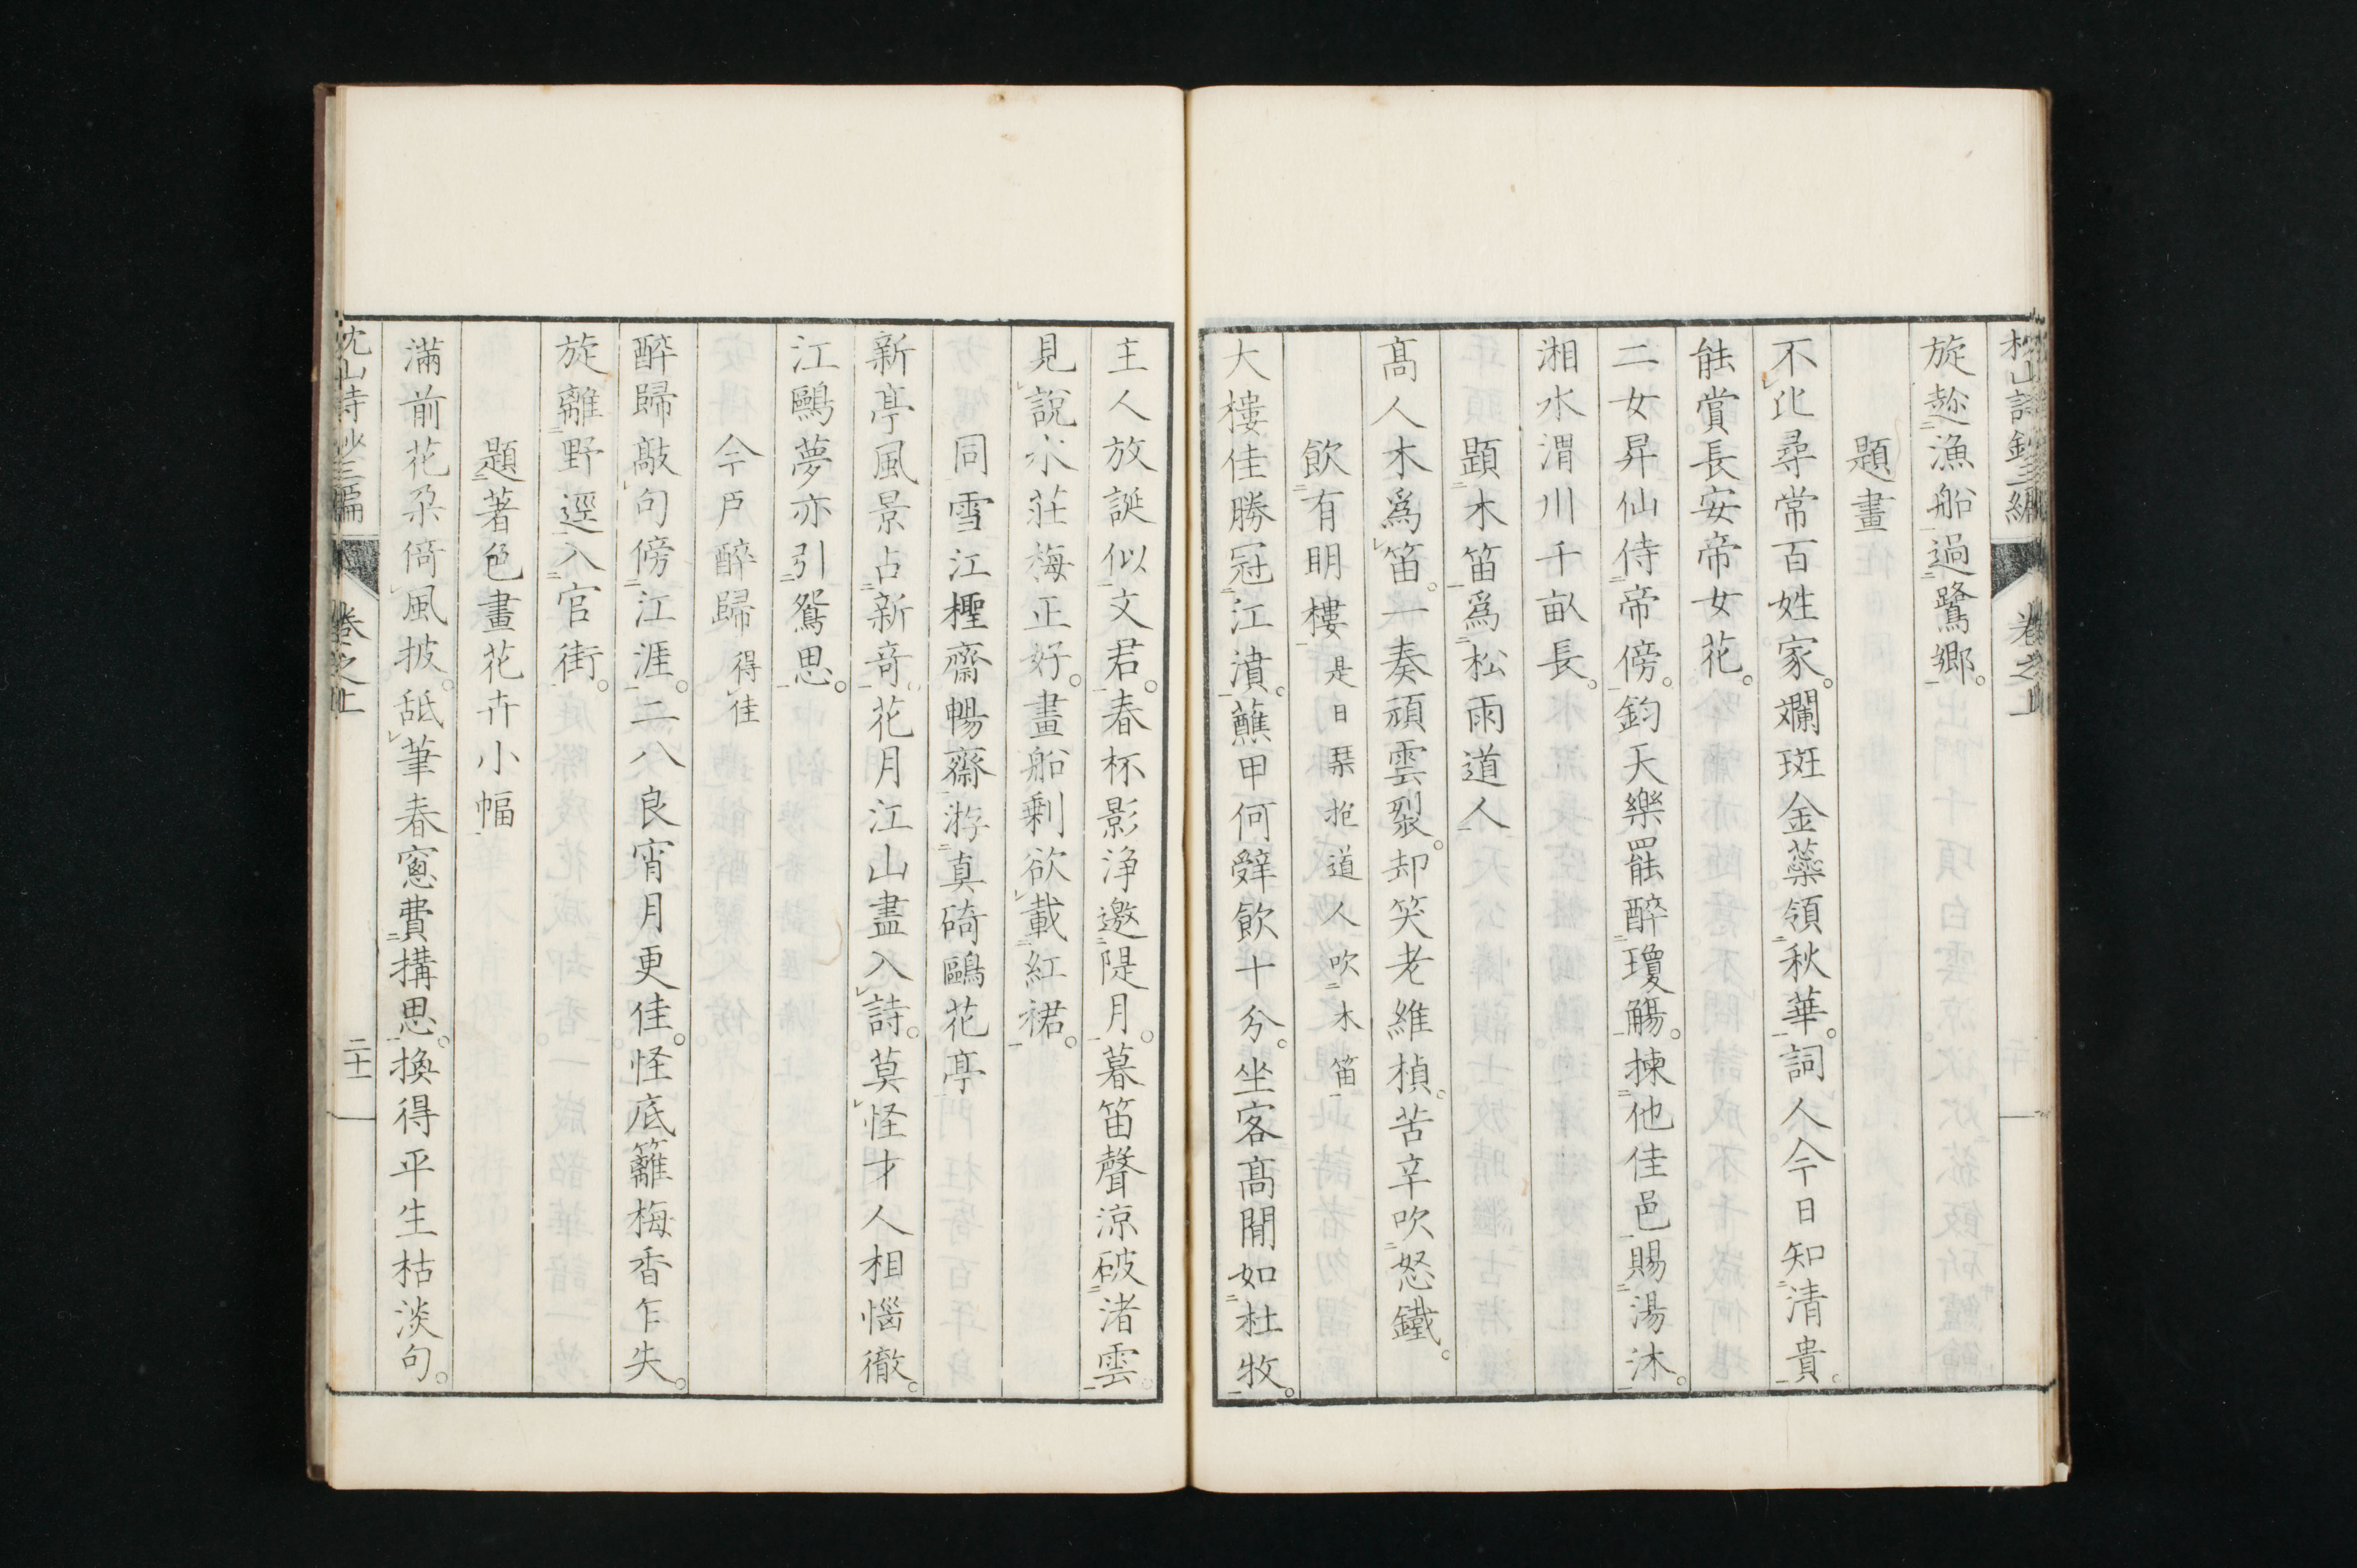 枕山詩鈔三編
卷之上
旋趂漁船過鷺鄉。
題畫
不比尋常百姓家。斓斑金蘂領秋華。詞人今日知清貴。
能賞長安帝女花。
二女昇仙侍帝傍。鈞天樂罷醉瓊觴。揀他佳邑賜湯沐。
湘水渭川千畝長。
題木笛爲松雨道人
髙人木爲笛。一奏頑雲裂。却笑老維楨。苦辛吹怒鐵。
飲有明樓是日琹抱道人吹木笛
大樓佳勝冠江濆。蘸甲何辤飲十分。坐客髙閒如杜牧。
主人放誕似文君。春杯影浄邀隄月。暮笛聲涼破渚雲。
見說水莊梅正好。畫船剩欲載紅裙。
同雪江檉齋暢齋游真碕鷗花亭
新亭風景占新竒。花月江山盡入詩。莫怪才人相惱徹。
江鷗夢亦引鴛思。
今戸醉歸得佳
醉歸敲句傍江涯。二八良宵月更佳。怪底籬梅香乍失。
旋離野逕入官街。
題著色畫花卉小幅
滿前花朶倚風披。舐筆春窻費搆思。換得平生枯淡句。
枕山詩鈔三編
卷之上
二十一